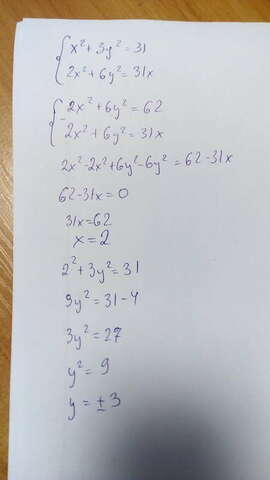 x² + 3y² = 31
2x² + 6y² = 31x
2x² + 6y² = 62
2x² + 6y² = 31x
2x² - 2x² + 6y² - 6y² = 62 - 31x
62 - 31x = 0
31x = 62
x = 2
2² + 3y² = 31
3y² = 31 - 4
3y² = 27
y² = 9
y = ± 3